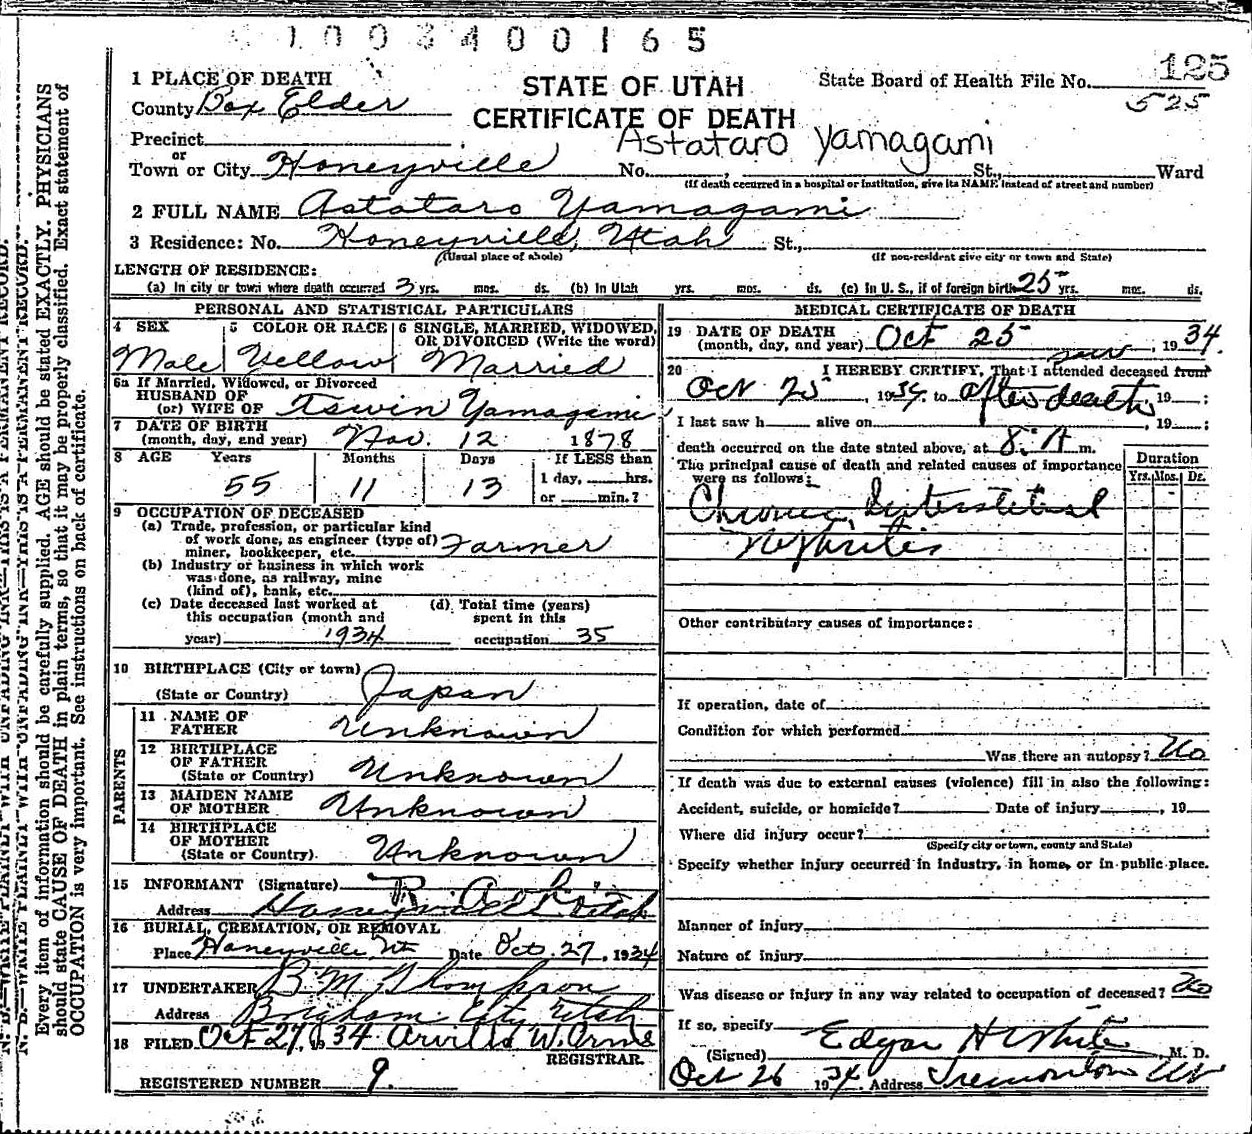 1003400165
125
1 PLACE OF DEATH
STATE OF UTAH
State Board of Health File No.
525
County Box Elder
CERTIFICATE OF DEATH
Precinct
Astataro Yamagami
or
Town or City Honeyville No. , St., Ward
(If death occurred in a hospital or institution, give its NAME instead of street and number)
2 FULL NAME Astataro Yamagami
3 Residence: No. Honeyville, Utah St.,
(Usual place of abode) (If non-resident give city or town and State)
LENGTH OF RESIDENCE:
(a) In city or town where death occurred 3 yrs. mos. ds. (b) In Utah yrs. mos. ds. (c) In U. S., if of foreign birth 25 yrs. mos. ds.
PERSONAL AND STATISTICAL PARTICULARS
4 SEX
Male
5 COLOR OR RACE
Yellow
6 SINGLE, MARRIED, WIDOWED,
OR DIVORCED (Write the word)
Married
6a If Married, Widowed, or Divorced
HUSBAND OF
(or) WIFE OF Yamagami
7 DATE OF BIRTH
(month, day, and year) Nov. 12 1878
8 AGE Years Months Days If LESS than
1 day, hrs.
or min.?
55 11 13
9 OCCUPATION OF DECEASED
(a) Trade, profession, or particular kind
of work done, as engineer (type of)
miner, bookkeeper, etc. Farmer
(b) Industry or business in which work
was done, as railway, mine
(kind of), bank, etc.
(c) Date deceased last worked at
this occupation (month and
year) 1934
(d) Total time (years)
spent in this
occupation 35
10 BIRTHPLACE (City or town)
(State or Country) Japan
PARENTS
11 NAME OF
FATHER Unknown
12 BIRTHPLACE
OF FATHER
(State or Country) Unknown
13 MAIDEN NAME
OF MOTHER Unknown
14 BIRTHPLACE
OF MOTHER
(State or Country). Unknown
15 INFORMANT (Signature)
Address Honeyville Utah
16 BURIAL, CREMATION, OR REMOVAL
Place Honeyville Ut Date Oct. 27, 1934
17 UNDERTAKER B. M. Thompson
Address Brigham City Utah
18 FILED Oct 27, 1934 Arvilla W. Orme
REGISTRAR.
REGISTERED NUMBER 9.
MEDICAL CERTIFICATE OF DEATH
19 DATE OF DEATH
(month, day, and year) Oct 25, 1934.
20 I HEREBY CERTIFY, That I attended deceased from
saw
Oct 25, 1934 to after death, 19 ;
I last saw h alive on , 19 ;
death occurred on the date stated above, at 8: A m.
The principal cause of death and related causes of importance
were as follows:
Duration
Yrs. Mos. Ds.
Chronic Interstitial
Nephritis
Other contributary causes of importance:
If operation, date of
Condition for which performed
Was there an autopsy? No
If death was due to external causes (violence) fill in also the following:
Accident, suicide, or homicide? Date of injury , 19
Where did injury occur?
(Specify city or town, county and State)
Specify whether injury occurred in industry, in home, or in public place.
Manner of injury
Nature of injury
Was disease or injury in any way related to occupation of deceased? No
If so, specify
(Signed) Edgar H White, M. D.
Oct 26 1934 Address Tremonton Ut
N. B.—WRITE PLAINLY WITH UNFADING INK—THIS IS A PERMANENT RECORD.
Every item of information should be carefully supplied. AGE should be stated EXACTLY. PHYSICIANS
should state CAUSE OF DEATH in plain terms, so that it may be properly classified. Exact statement of
OCCUPATION is very important. See instructions on back of certificate.